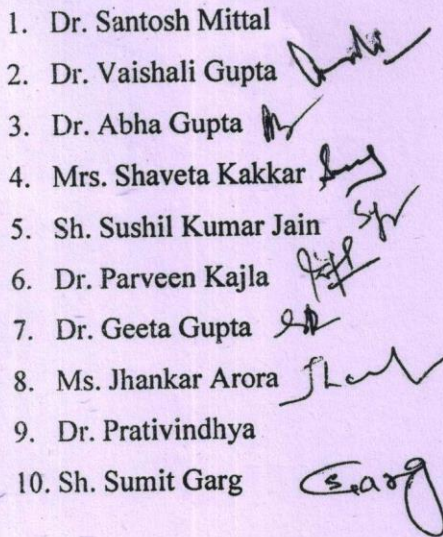 1. Dr. Santosh Mittal
2. Dr. Vaishali Gupta
3. Dr. Abha Gupta
4. Mrs. Shaveta Kakkar
5. Sh. Sushil Kumar Jain
6. Dr. Parveen Kajla
7. Dr. Geeta Gupta
8. Ms. Jhankar Arora
9. Dr. Prativindhya
10. Sh. Sumit Garg S.Garg